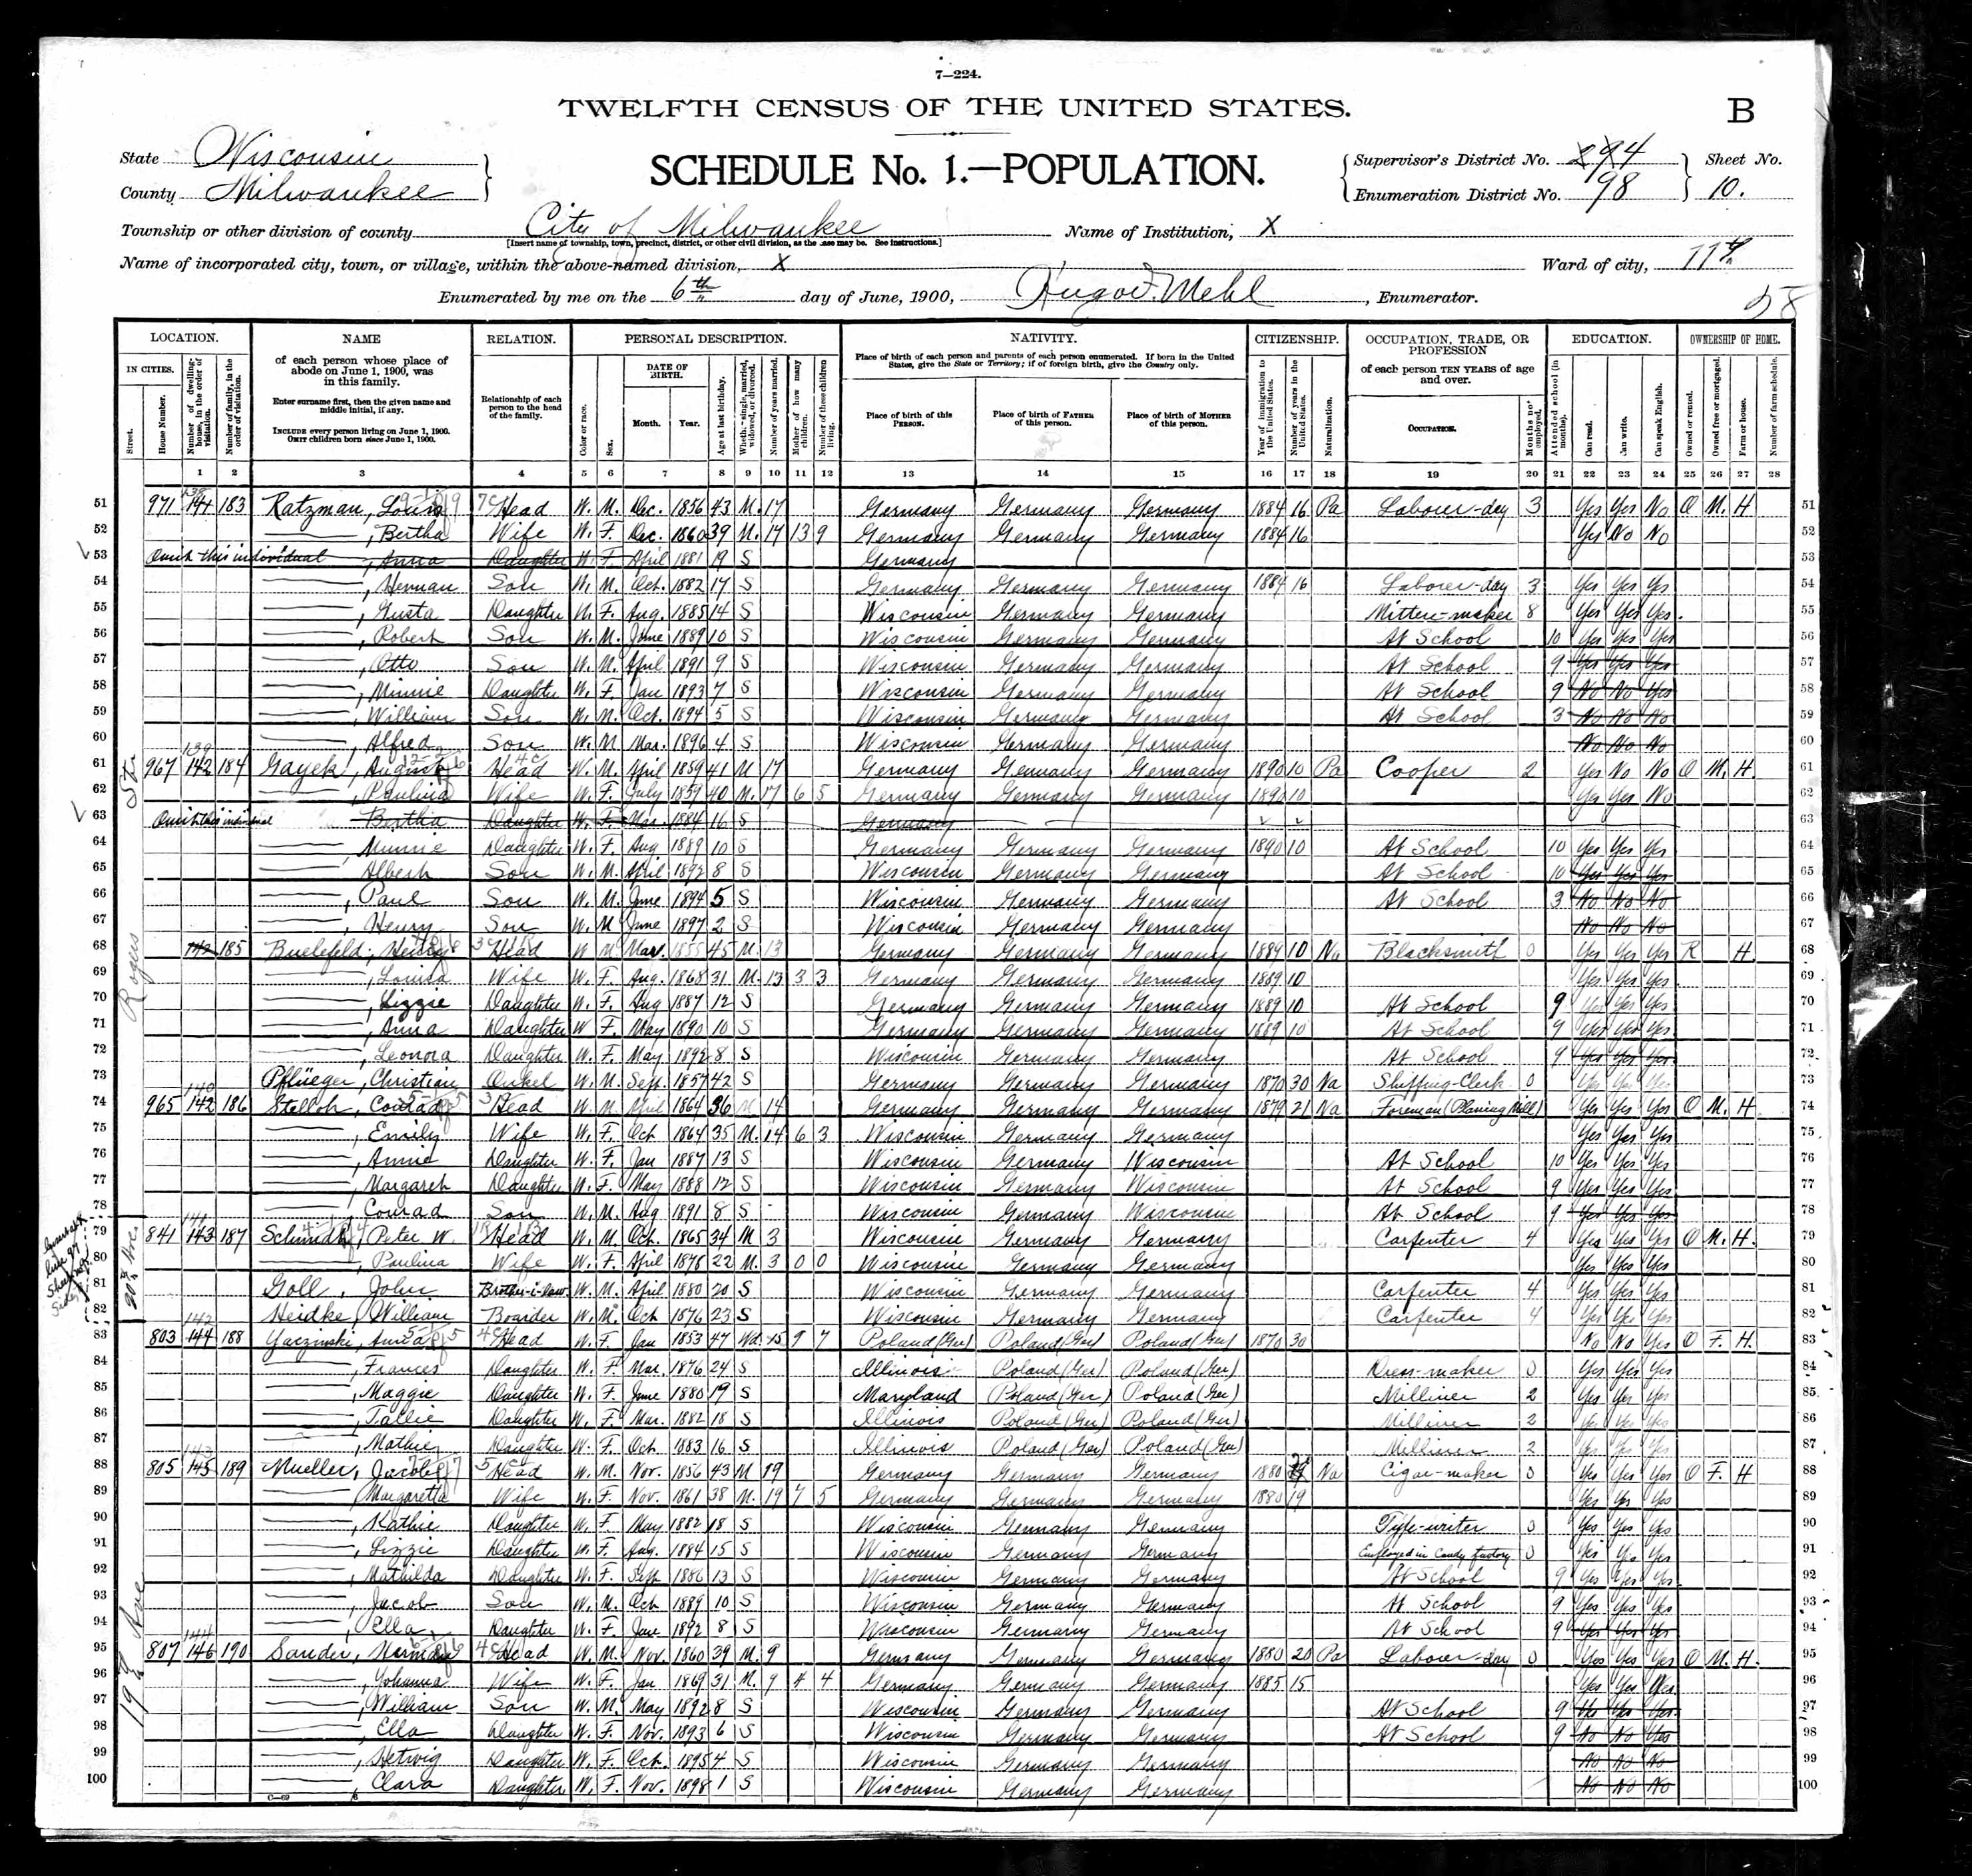 7—224.
TWELFTH CENSUS OF THE UNITED STATES.
B
State Wisconsin
County Milwaukee
SCHEDULE No. 1.—POPULATION.
Supervisor's District No. 4
Enumeration District No. 98
Sheet No. 10.
Township or other division of county City of Milwaukee
[Insert name of township, town, precinct, district, or other civil division, as the case may be. See instructions.]
Name of Institution, X
Name of incorporated city, town, or village, within the above-named division, X
Ward of city, 11th
Enumerated by me on the 6th day of June, 1900, Hugo Mehl, Enumerator.
58
LOCATION. NAME RELATION. PERSONAL DESCRIPTION. NATIVITY. CITIZENSHIP. OCCUPATION, TRADE, OR PROFESSION EDUCATION. OWNERSHIP OF HOME.
IN CITIES.
Street.
House Number.
Number of dwelling-house, in the order of visitation.
Number of family, in the order of visitation.
of each person whose place of abode on June 1, 1900, was in this family.
Enter surname first, then the given name and middle initial, if any.
INCLUDE every person living on June 1, 1900. OMIT children born since June 1, 1900.
Relationship of each person to the head of the family.
Color or race.
Sex.
DATE OF BIRTH.
Month. Year.
Age at last birthday.
Wheth. single, married, widowed, or divorced.
Number of years married.
Mother of how many children.
Number of these children living.
Place of birth of each person and parents of each person enumerated. If born in the United States, give the State or Territory; if of foreign birth, give the Country only.
Place of birth of this PERSON.
Place of birth of FATHER of this person.
Place of birth of MOTHER of this person.
Year of immigration to the United States.
Number of years in the United States.
Naturalization.
of each person TEN YEARS of age and over.
OCCUPATION.
Months not employed.
Attended school (in months).
Can read.
Can write.
Can speak English.
Owned or rented.
Owned free or mortgaged.
Farm or house.
Number of farm schedule.
1 2 3 4 5 6 7 8 9 10 11 12 13 14 15 16 17 18 19 20 21 22 23 24 25 26 27 28
51 971 141 183 Ratzman, Louis Head W. M. Dec. 1856 43 M. 17 Germany Germany Germany 1884 16 Pa Laborer-day 3 Yes Yes No O M. H 51
52 —, Bertha Wife W. F. Dec. 1860 39 M. 17 13 9 Germany Germany Germany 1884 16 Yes No No 52
53 Omit this individual —, Anna Daughter W. F. April 1881 19 S Germany 53
54 —, Herman Son W. M. Oct. 1882 17 S Germany Germany Germany 1884 16 Laborer-day 3 Yes Yes Yes 54
55 —, Gusta Daughter W. F. Aug. 1885 14 S Wisconsin Germany Germany Mitten-maker 8 Yes Yes Yes 55
56 —, Robert Son W. M. June 1889 10 S Wisconsin Germany Germany At School 10 Yes Yes Yes 56
57 —, Otto Son W. M. April 1891 9 S Wisconsin Germany Germany At School 9 Yes Yes Yes 57
58 —, Minnie Daughter W. F. Jan 1893 7 S Wisconsin Germany Germany At School 9 No No Yes 58
59 —, William Son W. M. Oct. 1894 5 S Wisconsin Germany Germany At School 3 No No No 59
60 —, Alfred Son W. M Mar. 1896 4 S Wisconsin Germany Germany No No No 60
61 967 142 184 Gayek, August Head W. M. April 1859 41 M 17 Germany Germany Germany 1890 10 Pa Cooper 2 Yes No No O M. H. 61
62 —, Paulina Wife W. F. July 1859 40 M. 17 6 5 Germany Germany Germany 1890 10 Yes Yes No 62
63 Omit this individual Bertha Daughter W. F. Mar. 1884 16 S Germany 63
64 —, Minnie Daughter W. F. Aug 1889 10 S Germany Germany Germany 1890 10 At School 10 Yes Yes Yes 64
65 — Albert Son W. M. April 1892 8 S Wisconsin Germany Germany At School 10 Yes Yes Yes 65
66 —, Paul Son W. M. June 1894 5 S Wisconsin Germany Germany At School 3 No No No 66
67 —, Henry Son W. M June 1897 2 S Wisconsin Germany Germany No No No 67
68 142 185 Buelefeld, Henry Head W M Mar. 1855 45 M. 13 Germany Germany Germany 1889 10 Na Blacksmith 0 Yes Yes Yes R H. 68
69 —, Louisa Wife W. F. Aug. 1868 31 M. 13 3 3 Germany Germany Germany 1889 10 Yes Yes Yes 69
70 —, Lizzie Daughter W. F. Aug 1887 12 S Germany Germany Germany 1889 10 At School 9 Yes Yes Yes 70
71 —, Anna Daughter W F. May 1890 10 S Germany Germany Germany 1889 10 At School 9 Yes Yes Yes 71
72 —, Leonora Daughter W. F. May 1892 8 S Wisconsin Germany Germany At School 9 Yes Yes Yes 72
73 Pflüeger, Christian Onkel W. M. Sep. 1857 42 S Germany Germany Germany 1870 30 Na Shipping-Clerk 0 Yes Yes Yes 73
74 965 142 186 Stelloh, Conrad Head W. M. April 1864 36 M 14 Germany Germany Germany 1879 21 Na Foreman (Planing Mill) Yes Yes Yes O M. H. 74
75 —, Emily Wife W. F. Oct 1864 35 M. 14 6 3 Wisconsin Germany Germany Yes Yes Yes 75
76 —, Annie Daughter W. F. Jan 1887 13 S Wisconsin Germany Wisconsin At School 10 Yes Yes Yes 76
77 —, Margareh Daughter W. F. May 1888 12 S Wisconsin Germany Wisconsin At School 9 Yes Yes Yes 77
78 —, Conrad Son W. M. Aug 1891 8 S Wisconsin Germany Wisconsin At School 9 Yes Yes Yes 78
79 841 143 187 Schmidt, Peter W. Head W. M. Oct. 1865 34 M 3 Wisconsin Germany Germany Carpenter 4 Yes Yes Yes O M. H. 79
80 —, Paulina Wife W. F. April 1878 22 M. 3 0 0 Wisconsin Germany Germany Yes Yes Yes 80
81 Goll, John Brother-i-law W. M. April 1880 20 S Wisconsin Germany Germany Carpenter 4 Yes Yes Yes 81
82 Heidke, William Boarder W. M. Oct 1876 23 S Wisconsin Germany Germany Carpenter 4 Yes Yes Yes 82
83 803 144 188 Yaczinski, Anna Head W. F. Jan 1853 47 Wd. 9 7 Poland (Ger) Poland (Ger) Poland (Ger) 1870 30 No No Yes O F. H. 83
84 —, Frances Daughter W. F Mar. 1876 24 S Illinois Poland (Ger) Poland (Ger) Dress-maker 0 Yes Yes Yes 84
85 —, Maggie Daughter W. F. June 1880 19 S Maryland Poland (Ger) Poland (Ger) Milliner 2 Yes Yes Yes 85
86 —, Tallie Daughter W. F. Mar. 1882 18 S Illinois Poland (Ger) Poland (Ger) Milliner 2 Yes Yes Yes 86
87 —, Mathie Daughter W. F. Oct 1883 16 S Illinois Poland (Ger) Poland (Ger) Milliner 2 Yes Yes Yes 87
88 805 145 189 Mueller, Jacob Head W. M. Nov. 1856 43 M 19 Germany Germany Germany 1880 Na Cigar-maker 0 Yes Yes Yes O F. H 88
89 —, Margaretta Wife W. F. Nov. 1861 38 M. 19 7 5 Germany Germany Germany 1880 19 Yes Yes Yes 89
90 —, Kathie Daughter W. F. May 1882 18 S Wisconsin Germany Germany Type-writer 0 Yes Yes Yes 90
91 —, Lizzie Daughter W. F. Aug. 1884 15 S Wisconsin Germany Germany Employed in Candy factory 0 Yes Yes Yes 91
92 —, Mathilda Daughter W. F. Sep. 1886 13 S Wisconsin Germany Germany At School 9 Yes Yes Yes 92
93 —, Jacob Son W. M. Oct 1889 10 S Wisconsin Germany Germany At School 9 Yes Yes Yes 93
94 —, Ella Daughter W. F. Jan 1892 8 S Wisconsin Germany Germany At School 9 Yes Yes Yes 94
95 807 146 190 Sander, Herman Head W. M. Nov. 1860 39 M. 9 Germany Germany Germany 1880 20 Pa Laborer-day 0 Yes Yes Yes O M. H. 95
96 —, Johanna Wife W. F. Jan 1869 31 M. 9 4 4 Germany Germany Germany 1885 15 Yes Yes Yes 96
97 —, William Son W. M. May 1892 8 S Wisconsin Germany Germany At School 9 Yes Yes Yes 97
98 —, Ella Daughter W. F. Nov. 1893 6 S Wisconsin Germany Germany At School 9 No No Yes 98
99 —, Hetwig Daughter W. F. Oct. 1895 4 S Wisconsin Germany Germany No No No 99
100 —, Clara Daughter W. F. Nov. 1898 1 S Wisconsin Germany Germany No No No 100
Rogers Str.
20th Ave.
19th Ave